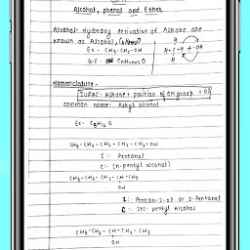 Alcohol, phenol and Ether
Alcohol: Hydroxy derivative of Alkane are
known as Alcohol.
Ex:- CH₃-CH₂-OH
G.F CnH2n+1 OH
Nomenclature -
IUPAC: Alkane + position of OH group + ol
common name: Alkyl alcohol
Ex:- C₅H₁₂O
CH₃-CH₂-CH₂-CH₂-CH₂-OH
I - Pentanol
C - (n-pentyl alcohol)
CH₃-CH₂-CH₂-CH-CH₃
OH
I: Pentan-2-ol or 2-Pentanol
C:
pentyl Alcohol
CH₃-CH₂-CH-CH₂-CH₃
OH